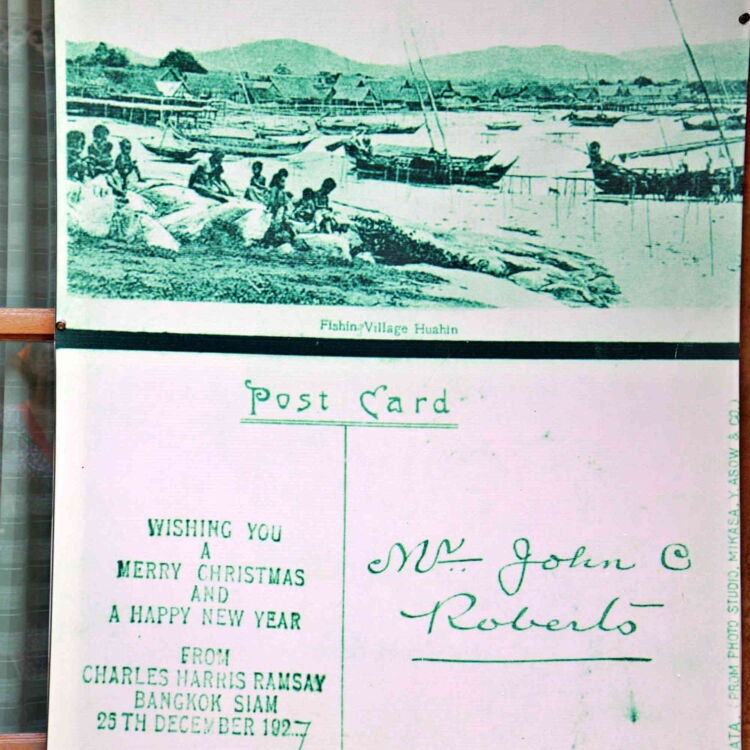 Fishing Village Huahin
Post Card
WISHING YOU
A
MERRY CHRISTMAS
AND
A HAPPY NEW YEAR
FROM
CHARLES HARRIS RAMSAY
BANGKOK SIAM
25TH DECEMBER 1927
Mr. John C
Roberts
(FROM PHOTO STUDIO, MIKASA, Y. ASOW & CO.)